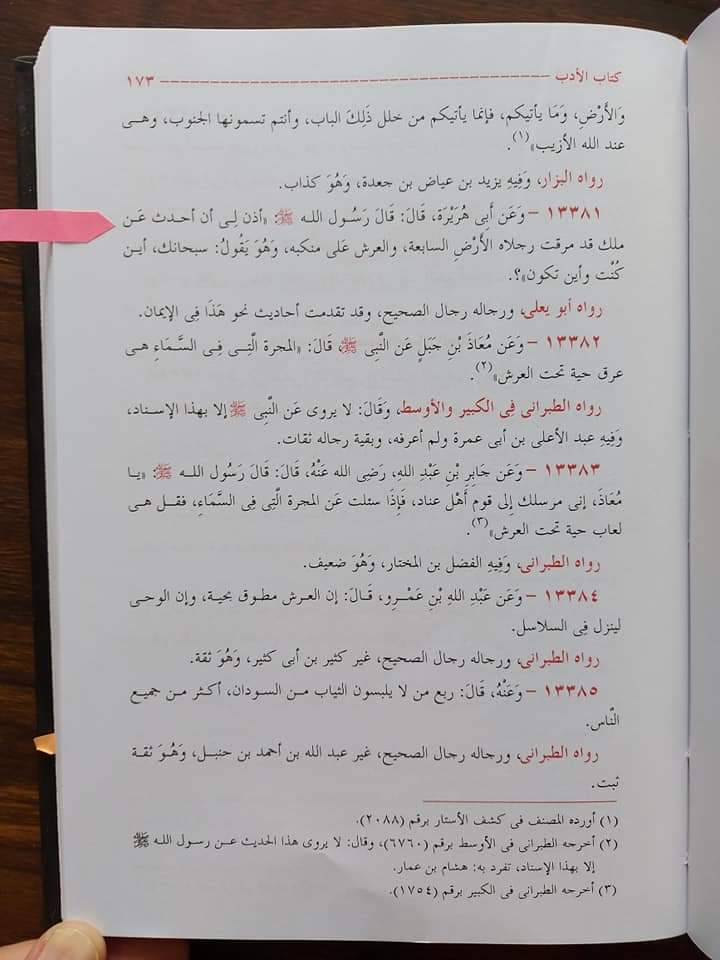 كتاب الأدب ١٧٣
وَالأَرْضِ، وَمَا يأتيكم، فإنما يأتيكم من خلل ذَلِكَ الباب، وأنتم تسمونها الجنوب، وهى
عند الله الأزيب»(١).
رواه البزار، وَفِيهِ يزيد بن عياض بن جعدة، وَهُوَ كذاب.
١٣٣٨١ – وَعَن أَبِى هُرَيْرَة، قَالَ: قَالَ رَسُول اللـه ﷺ «أذن لِى أن أحدث عَن
ملك قد مرقت رجلاه الأَرْضِ السابعة، والعرش عَلى منكبه، وَهُوَ يَقُولُ: سبحانك، أين
كُنْت وأين تكون»؟.
رواه أبو يعلى، ورجاله رجال الصحيح، وقد تقدمت أحاديث نحو هَذَا فِى الإيمان.
١٣٣٨٢ – وَعَن مُعَاذَ بْنِ جَبَلٍ عَن النَّبِى ﷺ، قَالَ: «المجرة الَّتِى فِى السَّمَاءِ هى
عرق حية تحت العرش»(٢).
رواه الطبرانى فِى الكبير والأوسط، وَقَالَ: لا يروى عَن النَّبِى ﷺ إلا بهذا الإسناد،
وَفِيهِ عبد الأعلى بن أبى عمرة ولم أعرفه، وبقية رجاله ثقات.
١٣٣٨٣ – وَعَن جَابِرِ بْنِ عَبْدِ اللهِ، رَضِى الله عَنْهُ، قَالَ: قَالَ رَسُول اللـه ﷺ: «يا
مُعَاذَ، إنى مرسلك إلى قوم أَهْل عناد، فَإِذَا سئلت عَن المجرة الَّتِى فِى السَّمَاءِ، فقل هى
لعاب حية تحت العرش»(٣).
رواه الطبرانى، وَفِيهِ الفضل بن المختار، وَهُوَ ضعيف.
١٣٣٨٤ – وَعَن عَبْدِ اللهِ بْنِ عَمْـرٍو، قَـالَ: إن العرش مطوق بحية، وإن الوحى
لينزل فِى السلاسل.
رواه الطبرانى، ورجاله رجال الصحيح، غير كثير بن أبى كثير، وَهُوَ ثقة.
١٣٣٨٥ – وَعَنْهُ، قَالَ: ربع من لا يلبسون الثياب مـن السودان، أكـثر مـن جميع
النَّاس.
رواه الطبرانى، ورجاله رجال الصحيح، غير عبد الله بن أحمد بن حنبـل، وَهُـوَ ثقة
ثبت.
(١) أورده المصنف فى كشف الأستار برقم (٢٠٨٨).
(٢) أخرجه الطبرانى فى الأوسط برقم (٦٧٦٠)، وقال: لا يروى هذا الحديث عـن رسول اللـه ﷺ
إلا بهذا الإسناد، تفرد به: هشام بن عمار.
(٣) أخرجه الطبرانى فى الكبير برقم (١٧٥٤).